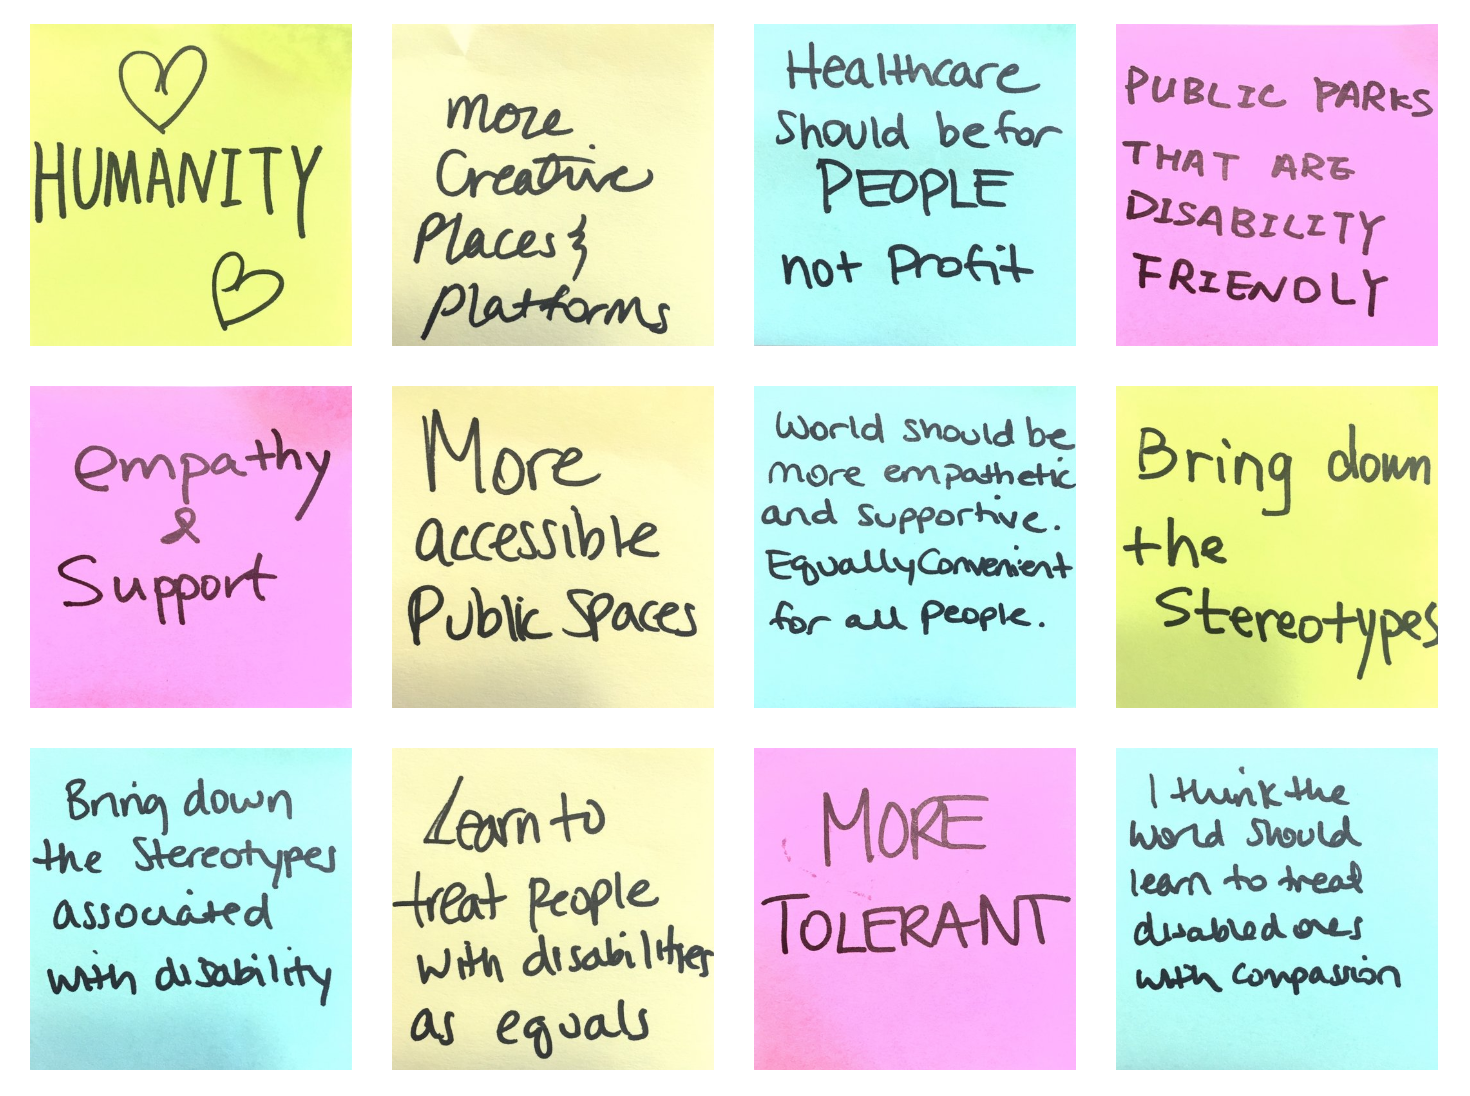 HUMANITY
more
Creative
Places &
Platforms
Healthcare
should be for
PEOPLE
not Profit
PUBLIC PARKS
THAT ARE
DISABILITY
FRIENDLY
empathy
&
Support
More
accessible
Public Spaces
World should be
more empathetic
and supportive.
Equally Convenient
for all people.
Bring down
the
Stereotypes
Bring down
the Stereotypes
associated
with disability
Learn to
treat people
with disabilities
as equals
MORE
TOLERANT
I think the
world should
learn to treat
disabled ones
with compassion